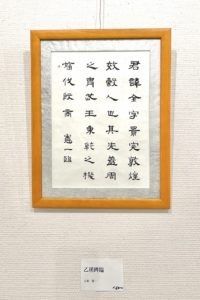 君諱全字景完敦煌
效穀人也其先蓋周
之胄武王秉乾之機
翦伐殷商 憲一臨
乙瑛碑臨